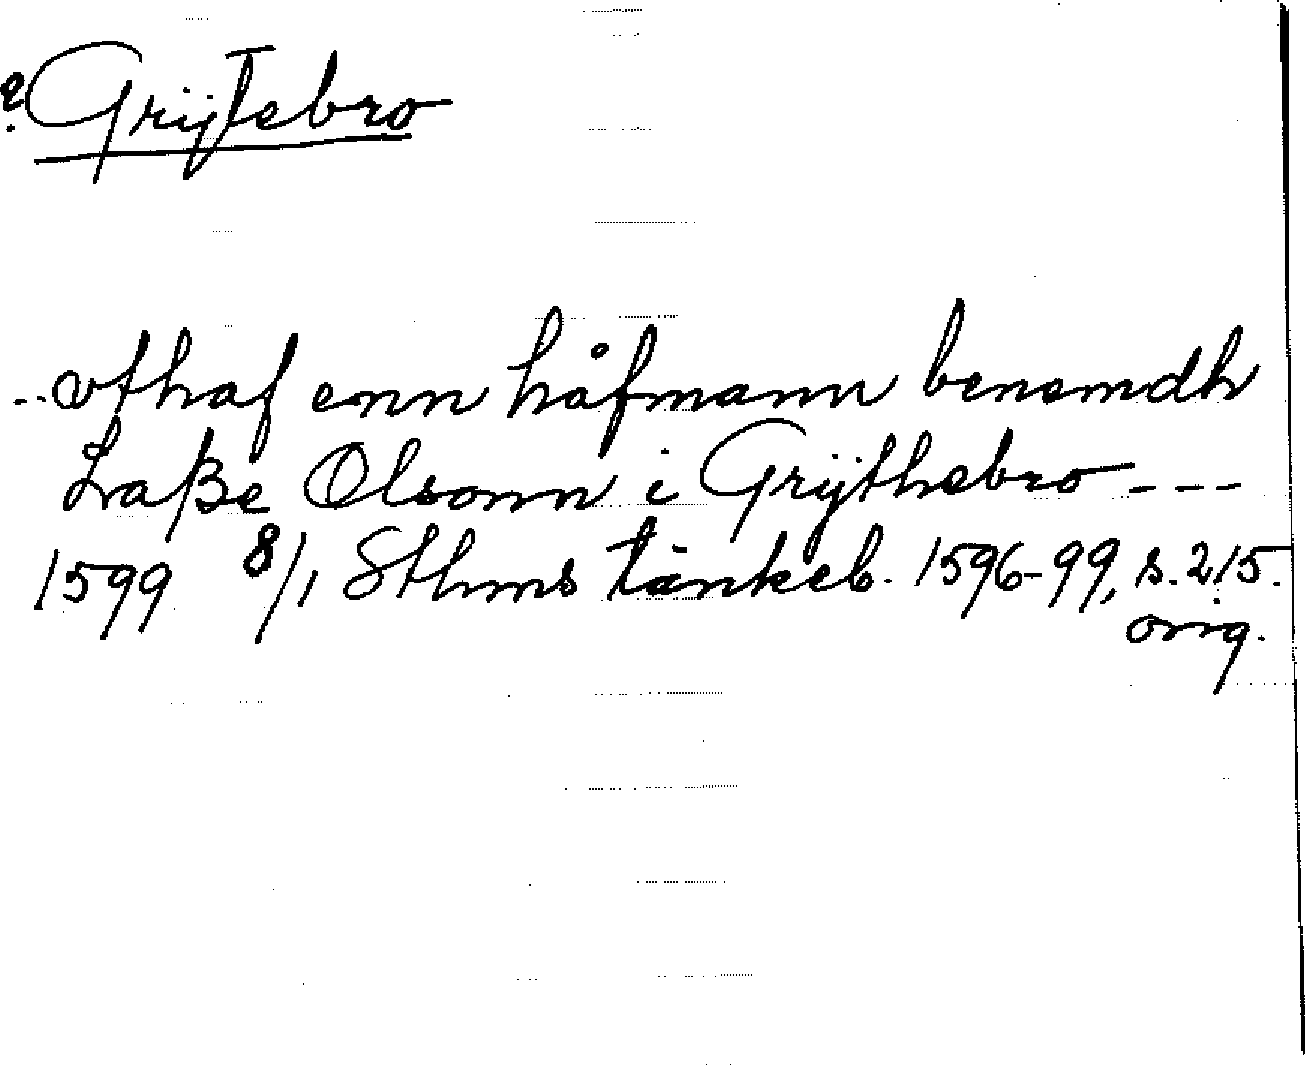 ? Grijtebro
..vthaf enn håfmann benemdh
Laße Olsonn i Grijthebro ---
1599 8/1 Sthms tänkeb. 1596-99, s. 215.
orig.